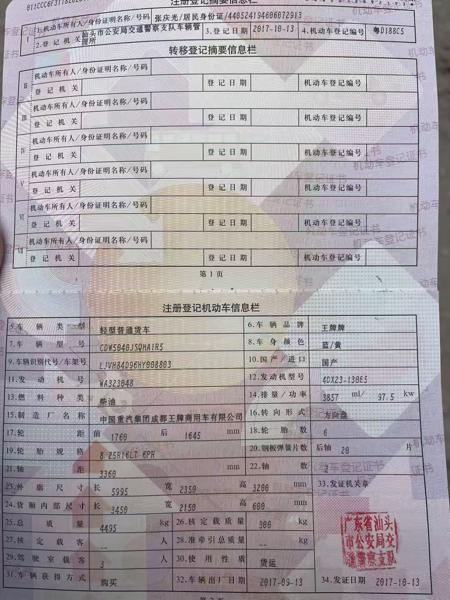 注册登记摘要信息栏
1.机动车所有人/身份证明名称/号码 张庆光/居民身份证/
2.登记机关 汕头市公安局交通警察支队车辆管理所 3.登记日期 2017-10-13 4.机动车登记编号 粤D188C5
转移登记摘要信息栏
II 机动车所有人/身份证明名称/号码
登记机关 登记日期 机动车登记编号
III 机动车所有人/身份证明名称/号码
登记机关 登记日期 机动车登记编号
IV 机动车所有人/身份证明名称/号码
登记机关 登记日期 机动车登记编号
V 机动车所有人/身份证明名称/号码
登记机关 登记日期 机动车登记编号
VI 机动车所有人/身份证明名称/号码
登记机关 登记日期 机动车登记编号
VII 机动车所有人/身份证明名称/号码
登记机关 登记日期 机动车登记编号
第1页
注册登记机动车信息栏
5.车辆类型 轻型普通货车 6.车辆品牌 王牌牌
7.车辆型号 8.车身颜色 蓝/黄
9.车辆识别代号/车架号 10.国产/进口 国产
11.发动机号 WA323048 12.发动机型号 4DX23-130E5
13.燃料种类 柴油 14.排量/功率 3857 ml/ 97.5 kw
15.制造厂名称 中国重汽集团成都王牌商用车有限公司 16.转向形式 方向盘
17.轮距 前 1760 后 1645 mm 18.轮胎数 6
19.轮胎规格 8.25R16LT 6PR 20.钢板弹簧片数 后轴 片
21.轴距 3360 mm 22.轴数 2
23.外廓尺寸 长 5995 宽 2350 高 3200 mm 33.发证机关章
24.货厢内部尺寸 长 3450 宽 2150 高 600 mm
25.总质量 4495 kg 26.核定载质量 kg
27.核定载客 人 28.准牵引总质量 kg
29.驾驶室载客 3 人 30.使用性质 货运
31.车辆获得方式 购买 32.车辆出厂日期 2017-09-13 34.发证日期 2017-10-13
广东省汕头
市公安局交
通警察支队
机动车登记证书